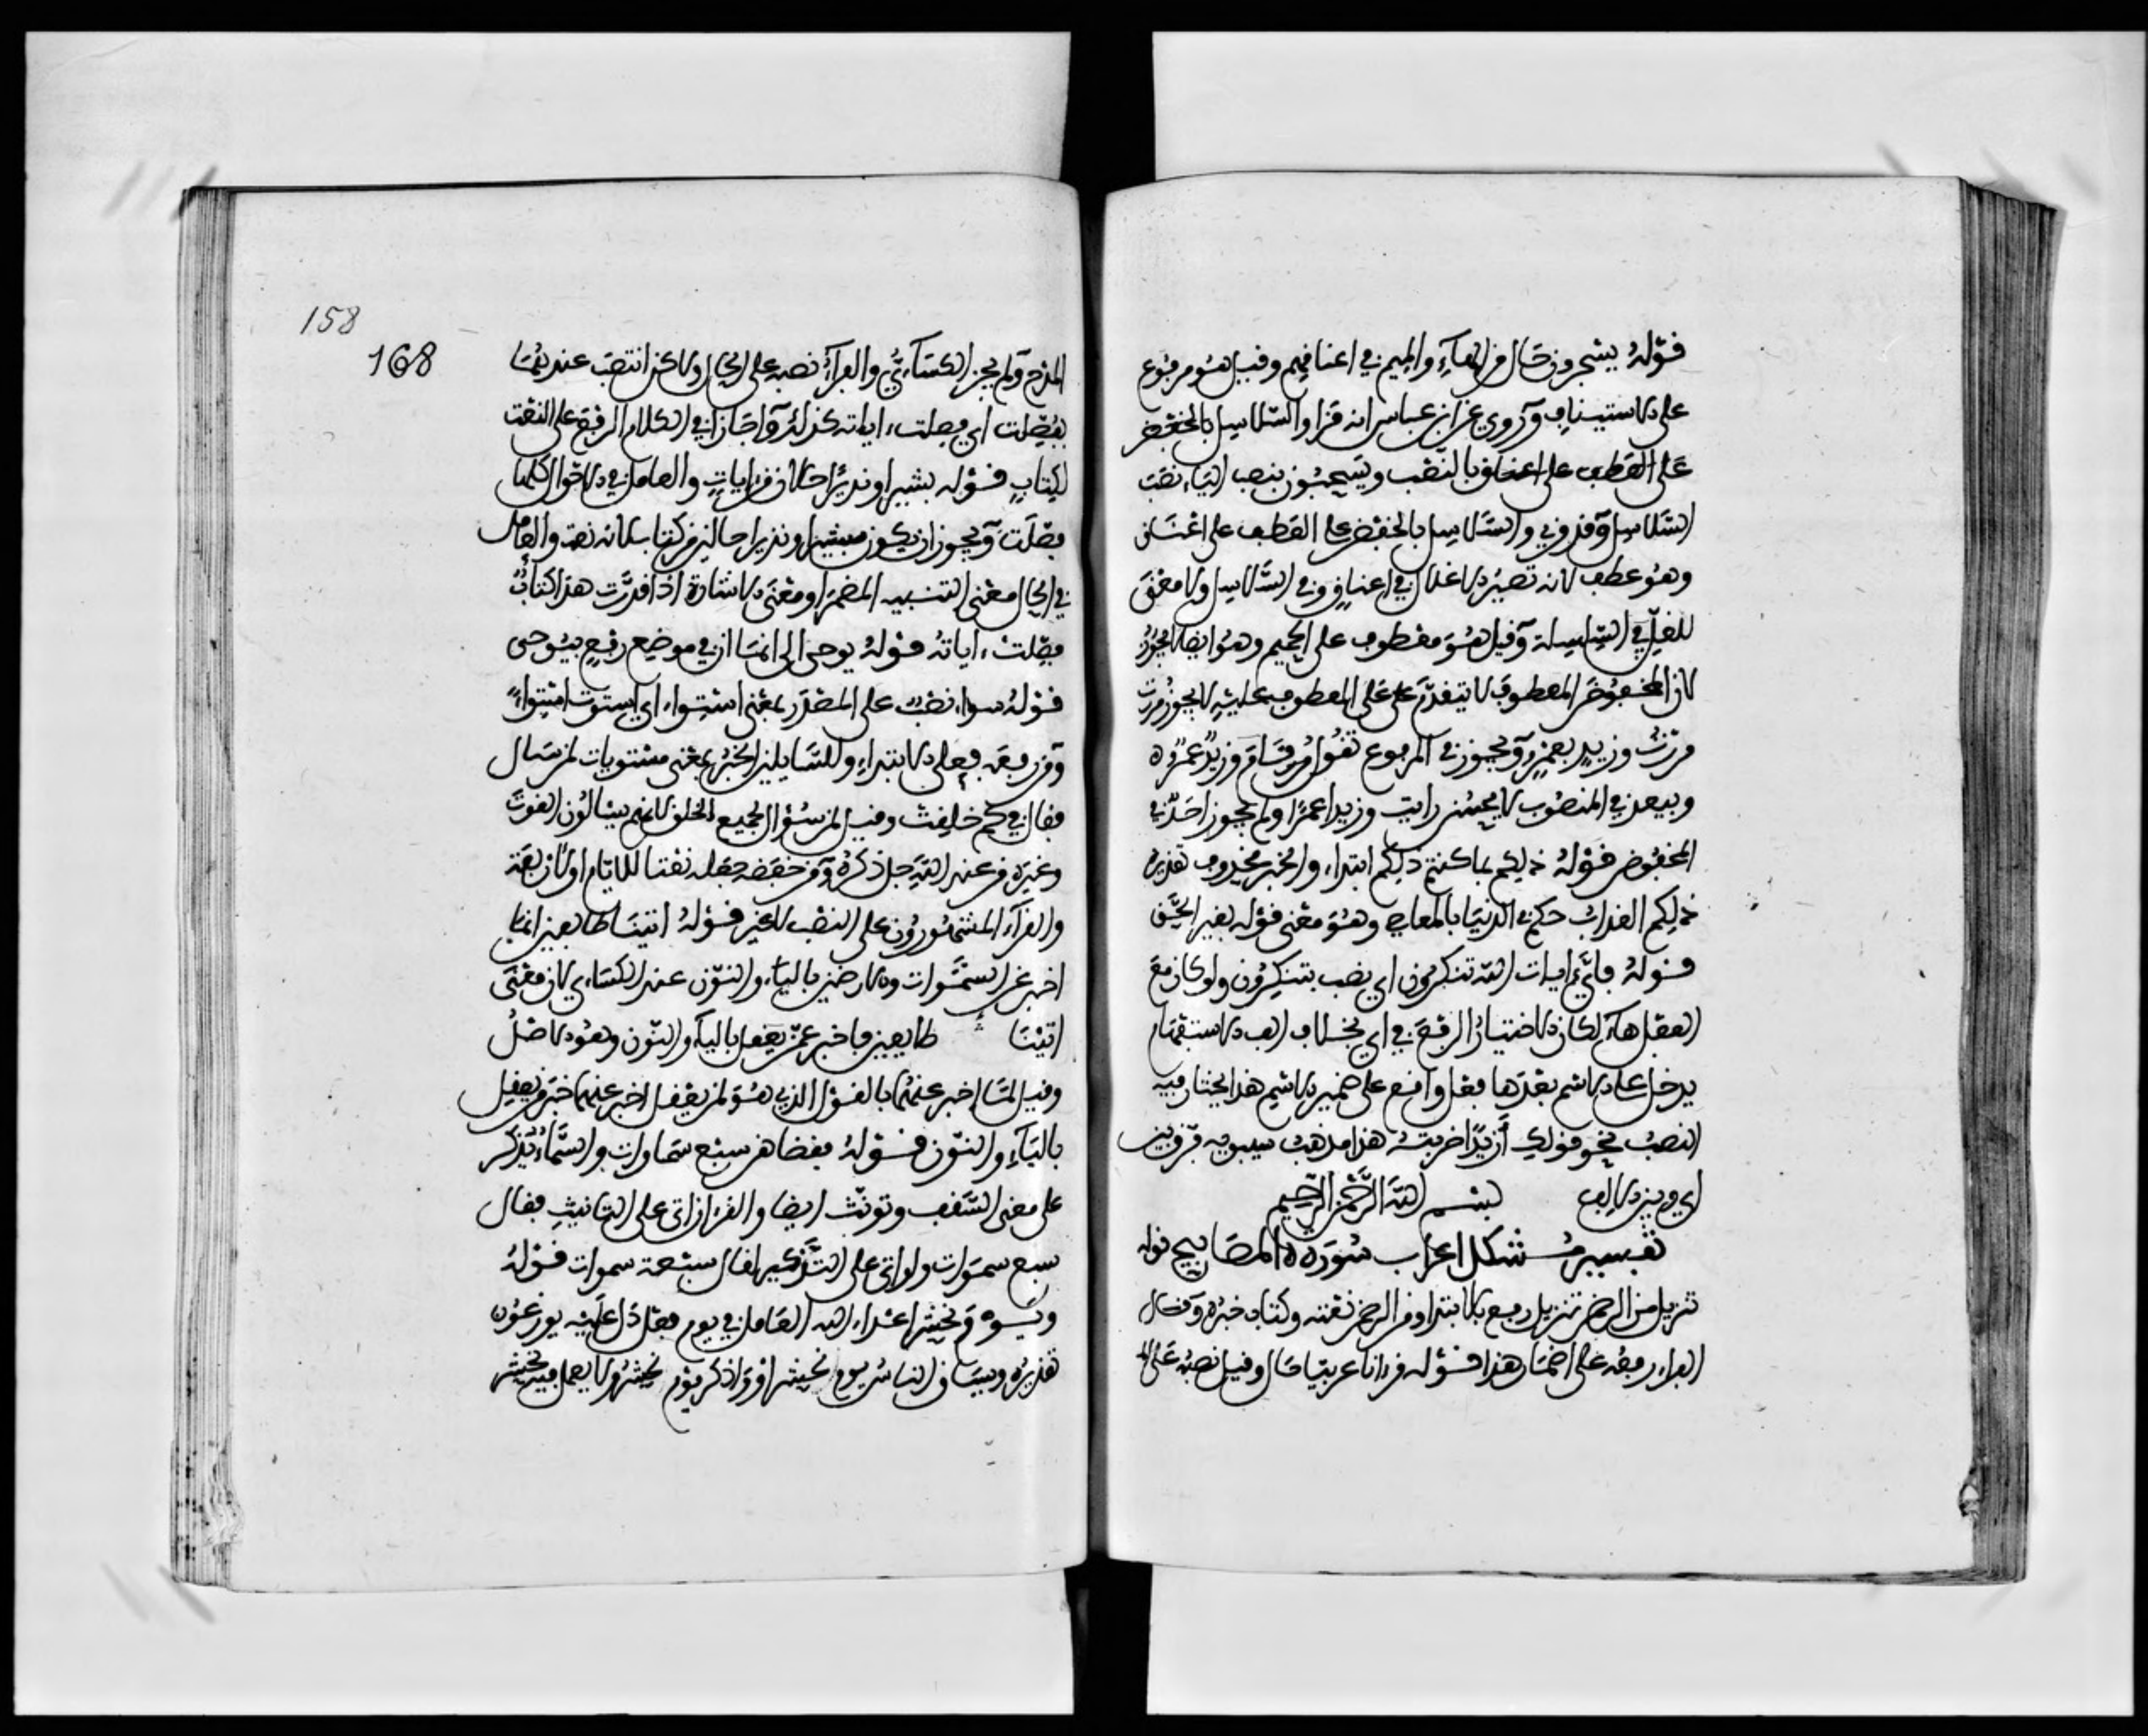 قوله يسجرون حال من الهاء والميم في اعناقهم وقيل هو مرفوع
على الاستيناف وروي عن ابن عباس انه قرا والسلاسل بالخفض
على العطف على اعناق بالنصب ويسحبون بنصب الياء نصب
السلاسل وقد روي والسلاسل بالخفض على العطف على اعناق
وهو عطف لانه تصير الاغلال في اعناق وفي السلاسل ولا معنى
للغل في السلسلة وقيل هو معطوف على الحميم وهو ايضا لا يجوز
لان المخفوض المعطوف لا يتقدم على المعطوف عليه لا يجوز مررت
مررت وزيد بعمرو ويجوز في المرفوع تقول قام وزيد عمرو
ويبعد في المنصوب لا يحسن رايت وزيدا عمرا ولم يجوز احد في
المخفوض قوله ذلكم بما كنتم ذلكم ابتداء والخبر محذوف تقديره
ذلكم العذاب حكم في الدنيا بالمعاصي وهو معنى قوله بغير الحق
قوله فاي ءايات الله تنكرون اي نصب بتنكرون ولو كان مع
الفعل هاء لكان الاختيار الرفع في اي بخلاف الف الاستفهام
يدخل على الاسم بعدها فعل واقع على ضمير الاسم هذا يختار فيه
النصب نحو قولك أزيدا ضربته هذا مذهب سيبويه فرق بين
اي وبين الالف بسم الله الرحمن الرحيم
تفسير مشكل اعراب سورة المصابيح قوله
تنزيل من الرحمن تنزيل رفع بالابتدا ومن الرحمن نعته وكتاب خبره وقال
الفراء رفعه على اضمار هذا قوله قرءانا عربيا حال وقيل نصبه على الم
158
168
المدح ولم يجز الكسائي والفراء نصبه على الحال ولاكن انتصب عندهما
بفصلت اي فصلت ءاياته كذلك واجازا في الكلام الرفع على النعت
لكتاب قوله بشيرا ونذيرا حالان من ايات والعامل في الاحوال كلها
فصلت ويجوز ان يكون بشيرا ونذيرا حالين من كتاب لانه نعت والعامل
في الحال معنى التنبيه المضمر او معنى الاشارة اذا قدرت هذا كتاب
فصلت ءاياته قوله يوحى الي انما ان في موضع رفع بيوحى
قوله سواء نصب على المصدر بمعنى استواء اي استوت استواء
ومن رفعه فعلى الابتداء وللسايلين الخبر بمعنى مستويات لمن سال
فقال في كم خلقت وقيل لمن سؤال لجميع الخلق لانهم يسالون القوت
وغيره من عند الله جل ذكره ومن خفضه جعله نعتا للايام او لاربعة
والقراء المشهورون على النصب لا غير قوله اتينا طايعين انما
اخبر عن السموات والارضين بالياء والنون عند الكسائي لان معنى
اتينا طايعين فاخبر عمن يعقل بالياء والنون وهو الاصل
وقيل لما اخبر عنهما بالقول الذي هو لمن يعقل اخبر عنهما خبر من يعقل
بالياء والنون قوله فقضاهن سبع سماوات والسماء تذكر
على معنى السقف وتونث ايضا والقرءان اتى على التانيث فقال
سبع سموات ولو اتى على التذكير لقال سبعة سموات قوله
ويوم نحشر اعداء الله العامل في يوم فعل دل عليه يوزعون
تقديره ويساق الناس يوم نحشر او واذكر يوم نحشر ولا يعمل فيه نحشر